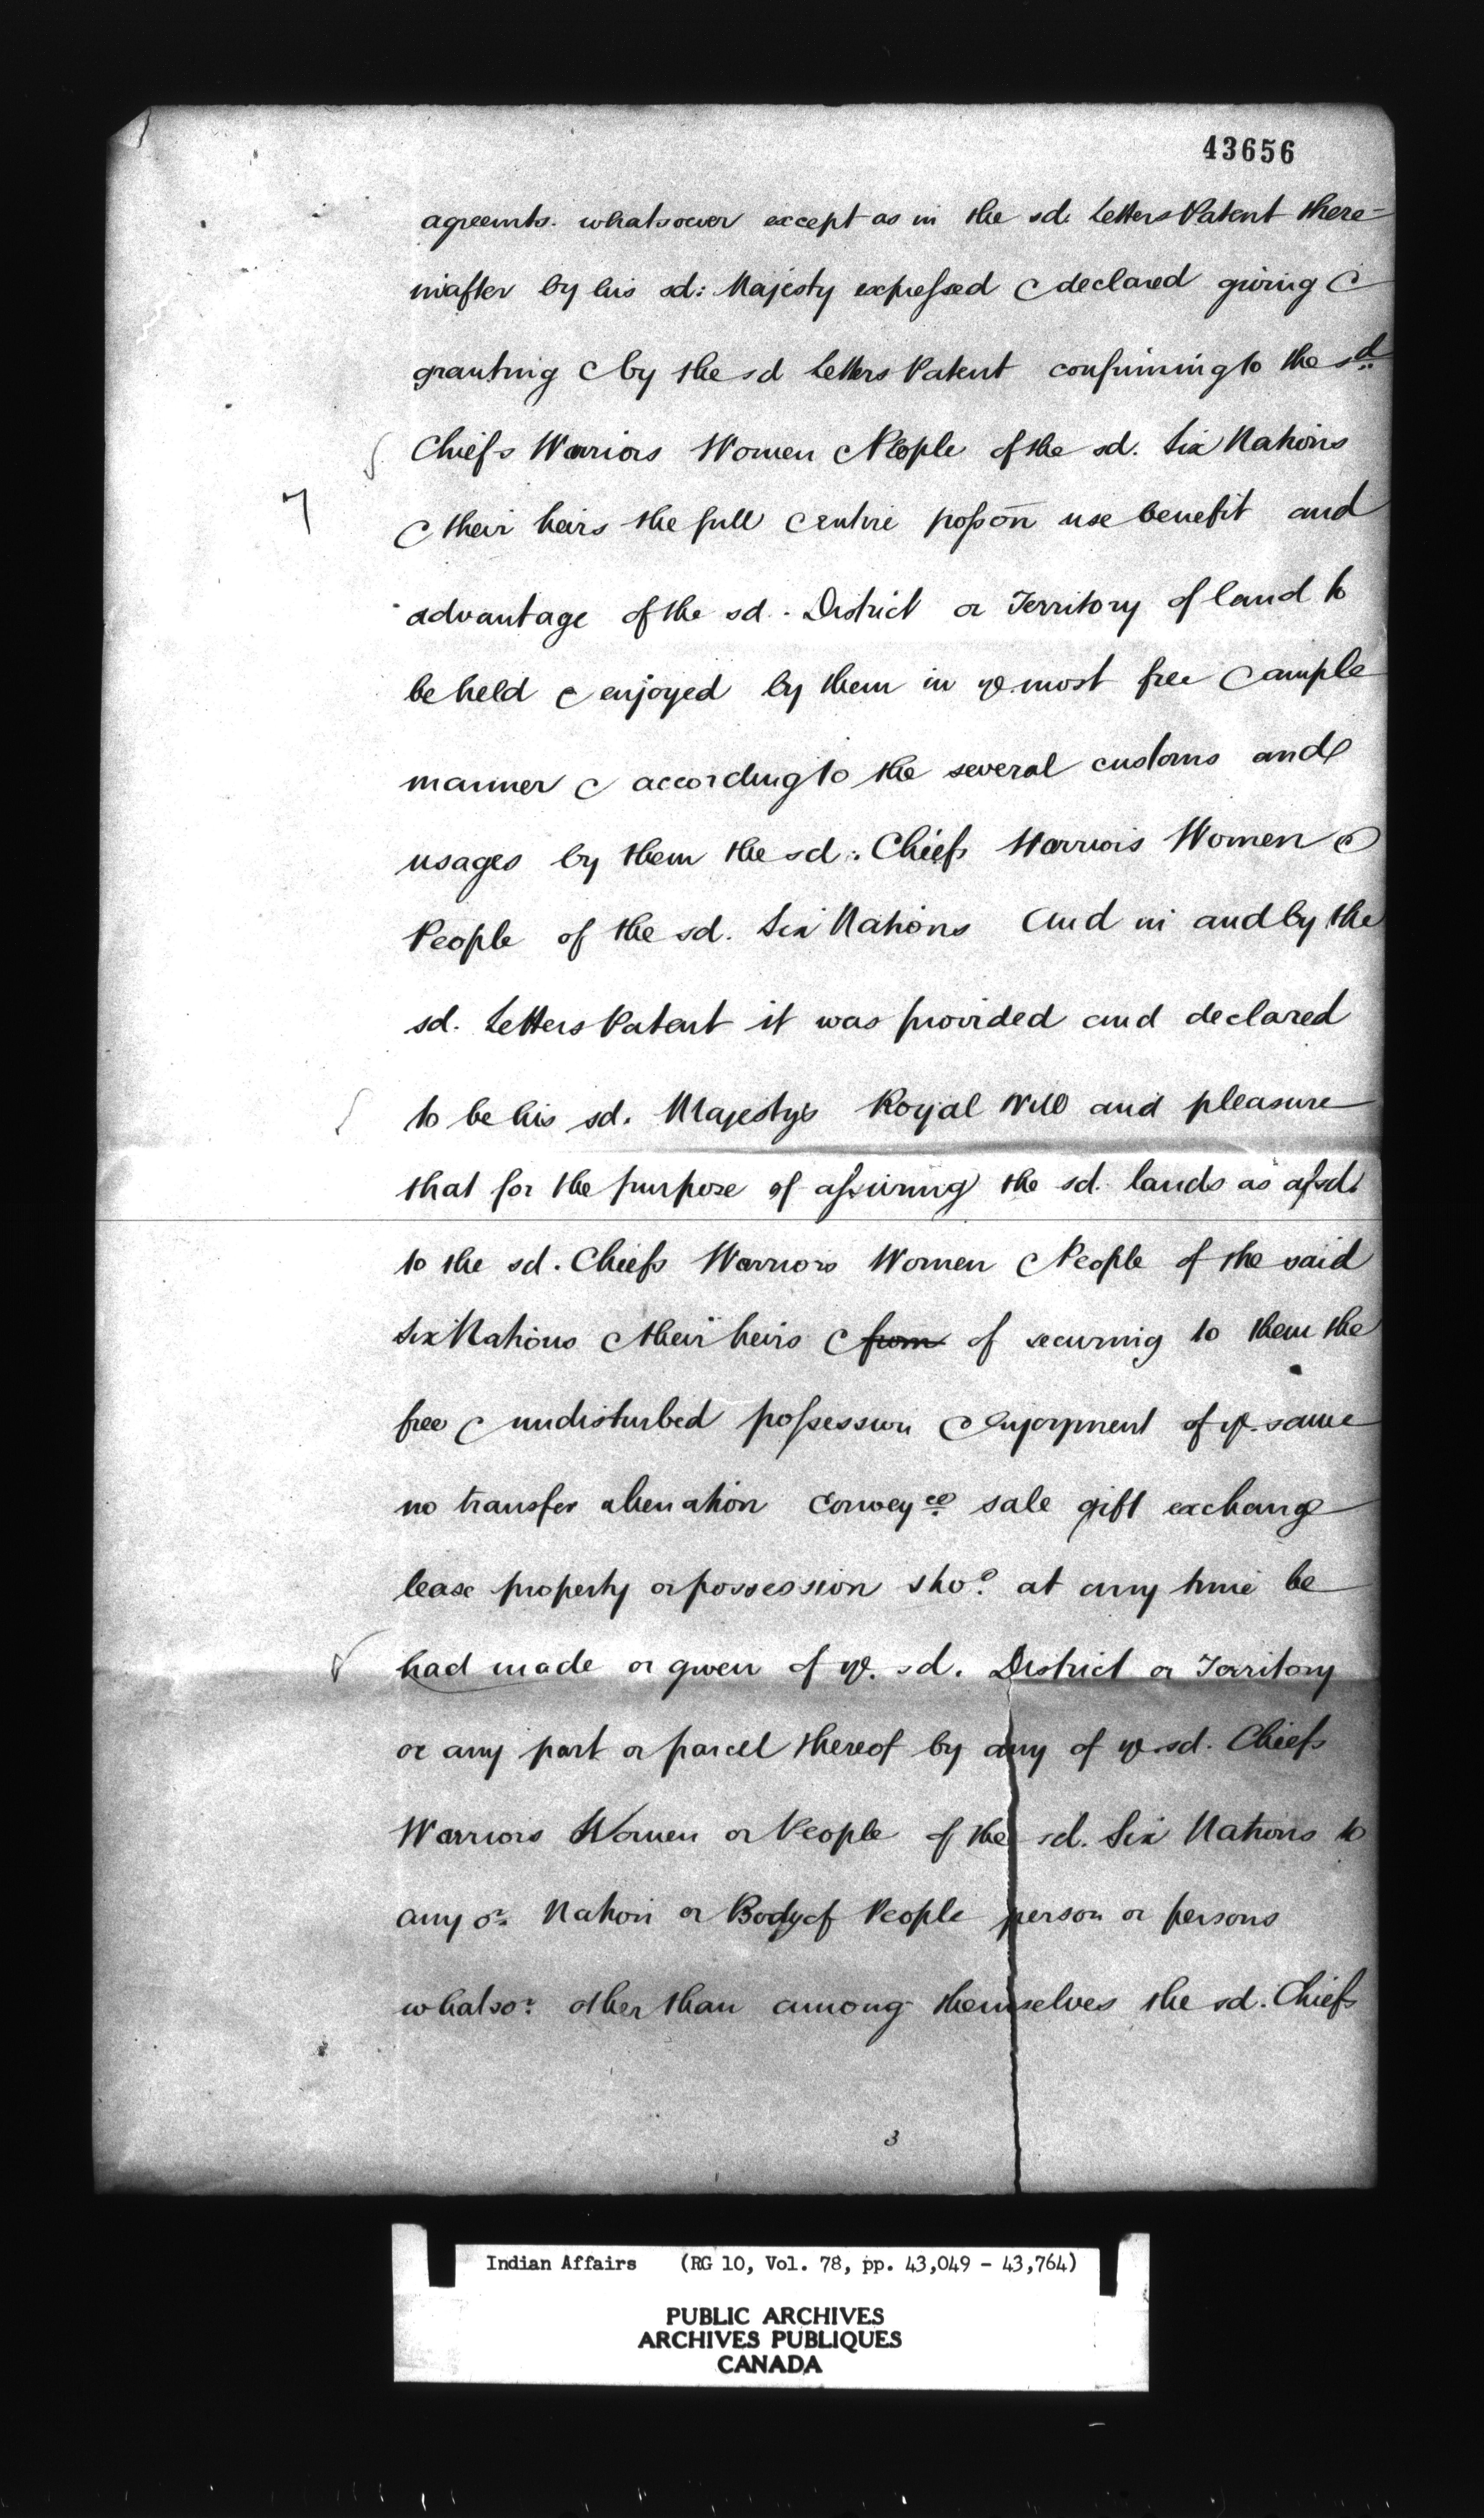 43656
agreemts. whatsoever except as in the sd. Letters Patent there=
inafter by his sd: Majesty expressed & declared giving &
granting & by the sd Letters Patent confirming to the sd.
Chiefs Warriors Women & People of the sd. Six Nations
7
& their heirs the full & entire possōn use benefit and
advantage of the sd. District or Territory of land to
be held & enjoyed by them in ye. most free & ample
manner & according to the several customs and
usages by them the sd: Chiefs Warriors Women &
People of the sd. Six Nations And in and by the
sd. Letters Patent it was provided and declared
to be his sd. Majesty's Royal Will and pleasure
that for the purpose of assuring the sd. lands as afsd.
to the sd. Chiefs Warriors Women & People of the said
Six Nations & their heirs & from of securing to them the
free & undisturbed possession & enjoyment of ye. same
no transfer alienation Conveyce. sale gift exchange
lease property or possession shod. at any time be
had made or given of ye. sd. District or Territory
or any part or parcel thereof by any of ye. sd. Chiefs
Warriors Women or People of the sd. Six Nations to
any or. Nation or Body of People person or persons
whatsor. other than among themselves the sd. Chiefs
3
Indian Affairs (RG 10, Vol. 78, pp. 43,049 - 43,764)
PUBLIC ARCHIVES
ARCHIVES PUBLIQUES
CANADA